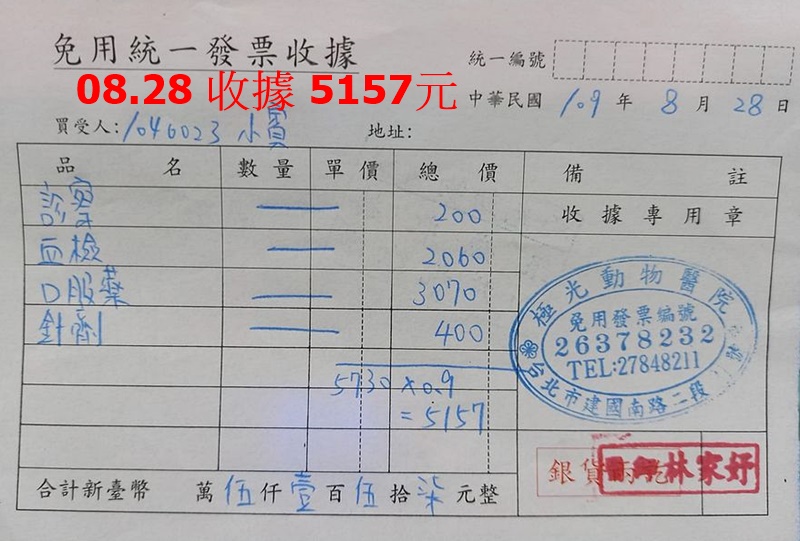 免用統一發票收據
統一編號
08.28 收據 5157元
中華民國 109 年 8 月 28 日
買受人: 1046023 小賓 地址:
品名 數量 單價 總價 備註
診察 — 200 收據專用章
血檢 — 2060
口服藥 — 3070
針劑 — 400
5730 x0.9
=5157
極光動物醫院
免用發票編號
26378232
TEL:27848211
台北市建國南路二段
銀貨兩訖
林家妤
合計新臺幣 萬 伍 仟 壹 百 伍 拾 柒 元整